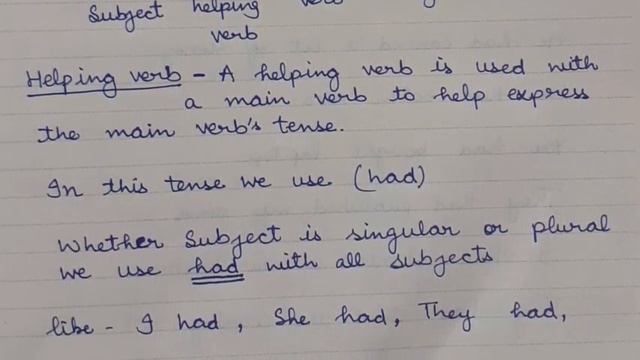 Subject helping
verb
Helping verb - A helping verb is used with
a main verb to help express
the main verb's tense.
In this tense we use (had)
Whether Subject is singular or plural
we use had with all subjects
like - I had, She had, They had,